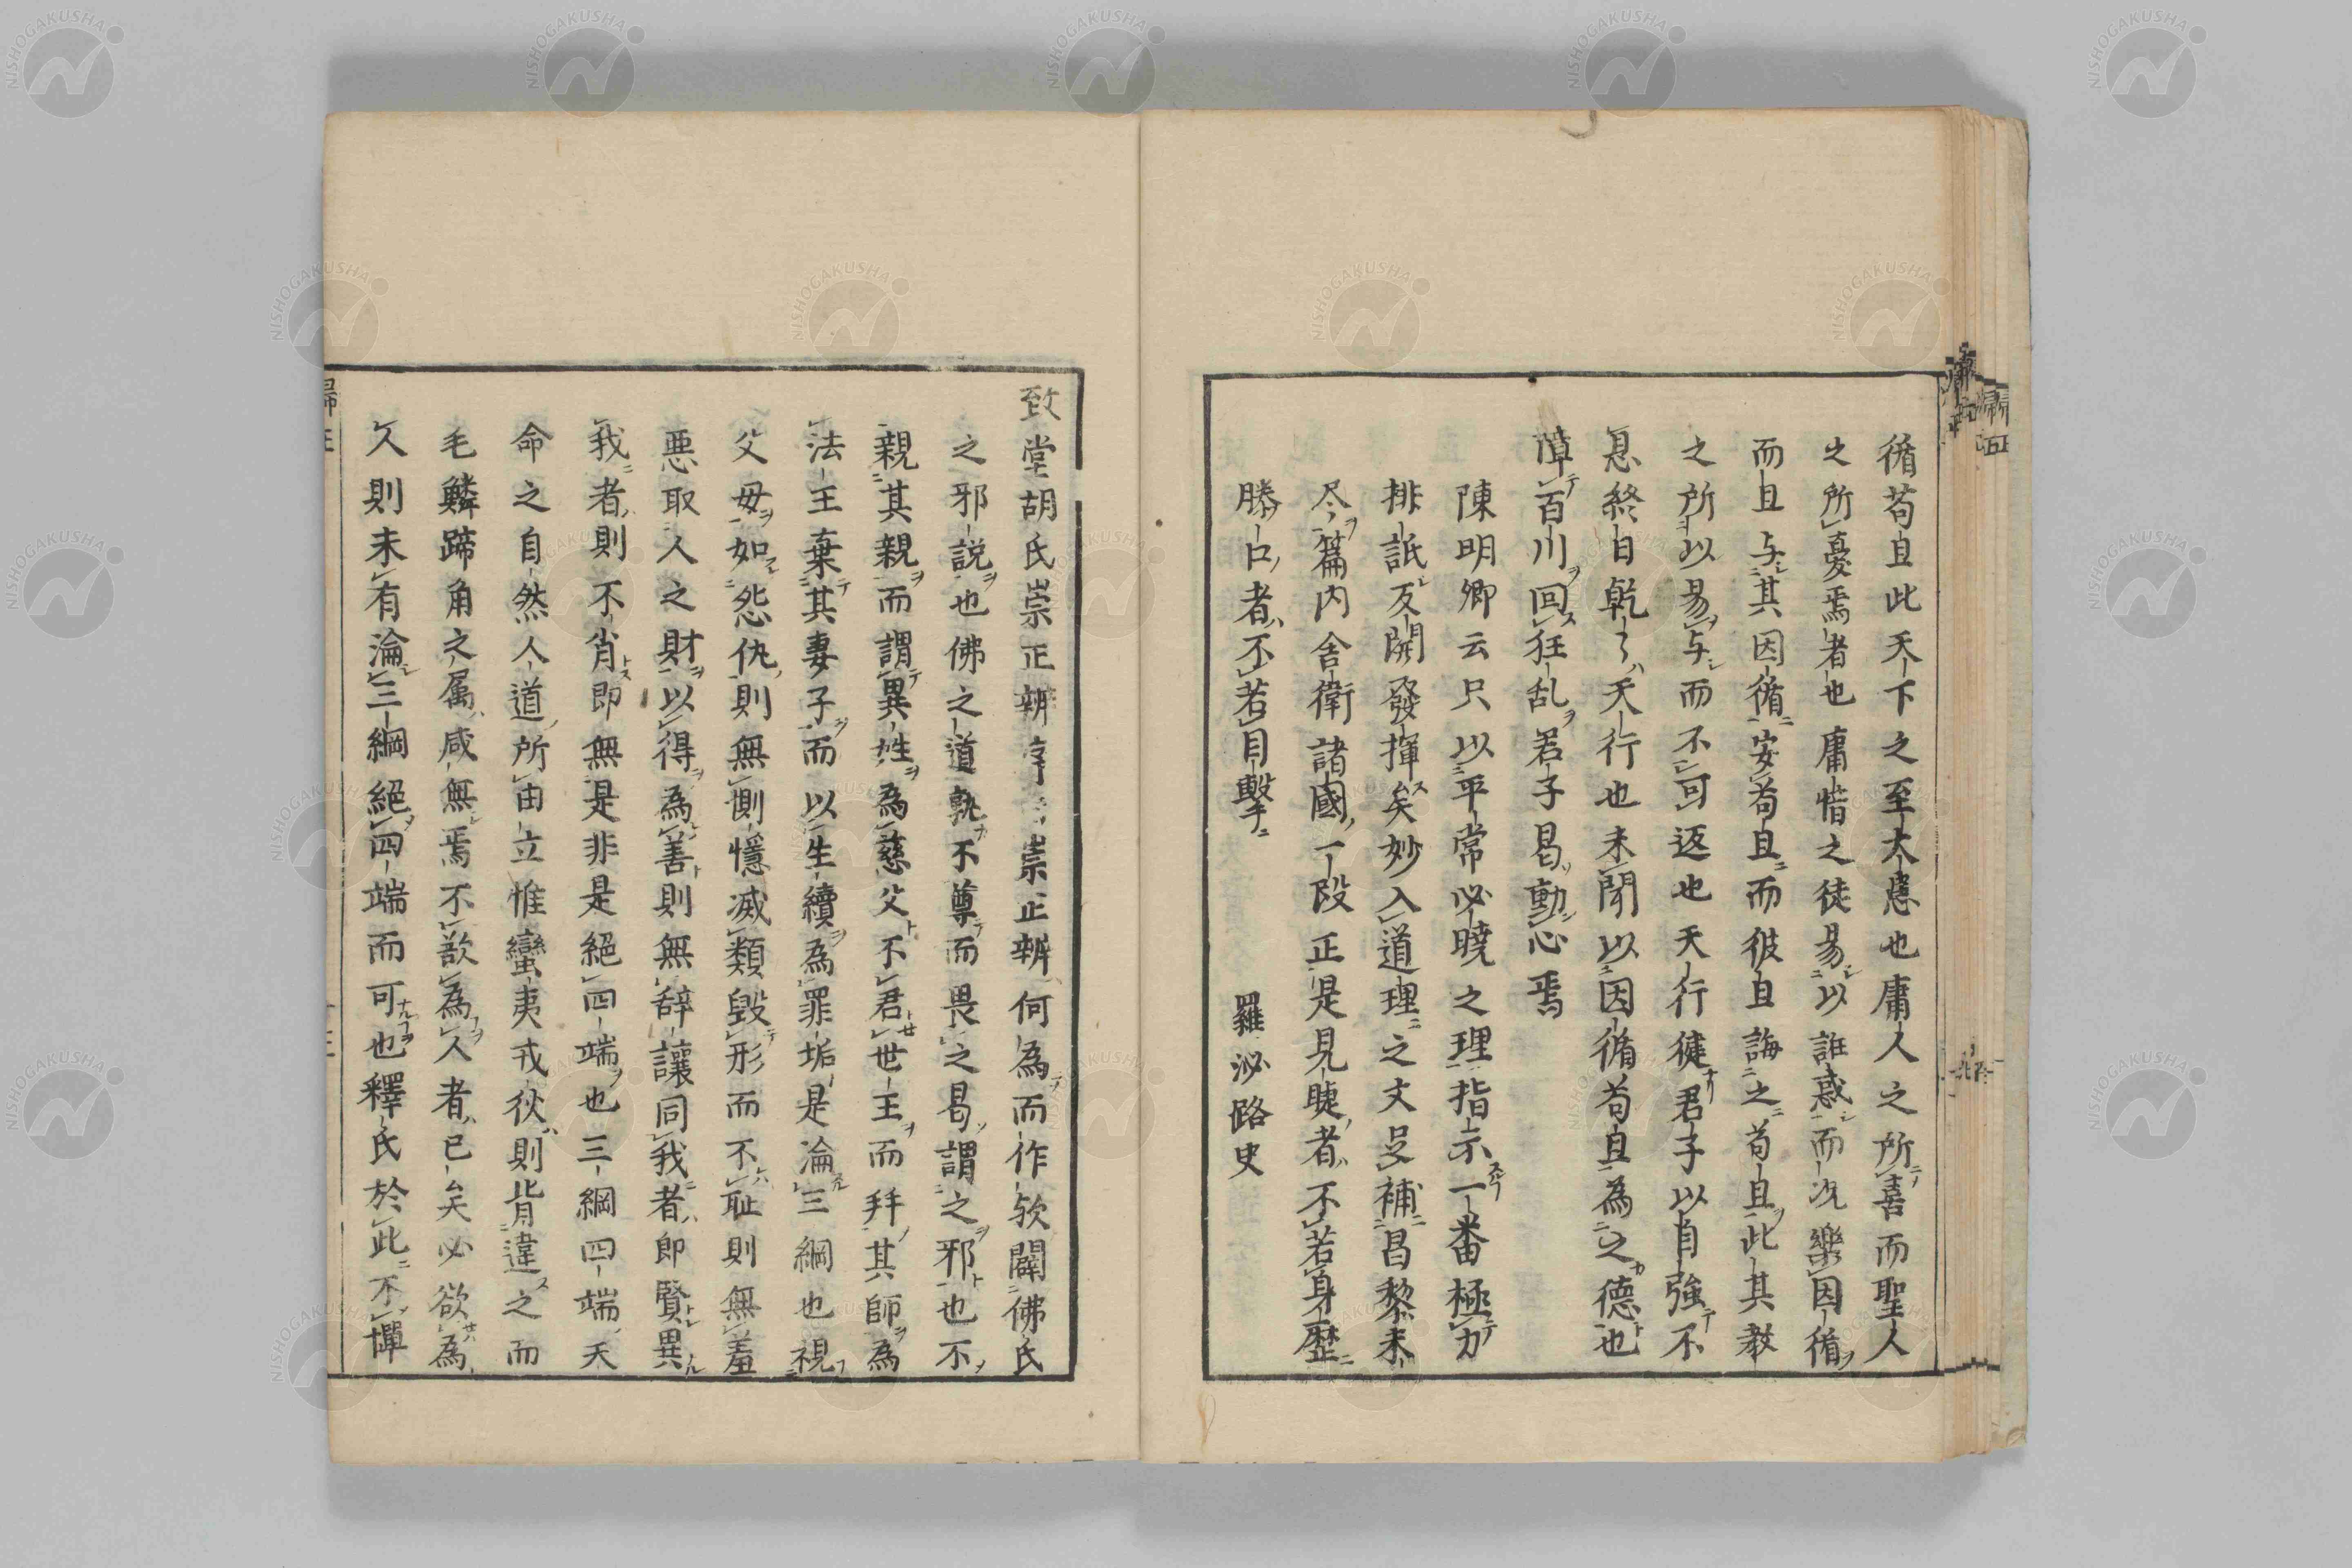 循苟且此天下之至大患也庸人之所喜而聖人
之所憂焉者也庸惜之徒易以誑惑而况樂因循
而且与其因循安苟且而彼且誨之苟且此其教
之所以易与而不可返也天行健君子以自強不
息終日乾〻天行也未聞以因循苟且為之德也
障百川回狂乱君子曷動心焉
陳明卿云只以平常必曉之理指示一番極力
排詆反開發揮矣妙入道理之文足補昌黎未
尽篇内舎衛諸國一段正是見睫者不若身歴
勝口者不若目擊
羅泌路史
致堂胡氏崇正辨序 崇正辨何為而作欤闢佛氏
之邪説也佛之道孰不尊而畏之曷謂之邪也不
親其親而謂異姓為慈父不君世主而拜其師為
法王棄其妻子而以生續為罪垢是淪三綱也視
父母如怨仇則無惻憶滅類毀形而不耻則無羞
悪取人之財以得為善則無辭讓同我者即賢異
我者則不肖即無是非是絕四端也三綱四端天
命之自然人道所由立惟蠻夷戎狄則背違之而
毛鱗蹄角之属咸無焉不欲為人者已矣必欲為
人則未有淪三綱絕四端而可也釋氏於此不憚
歸正
NISHOGAKUSHA